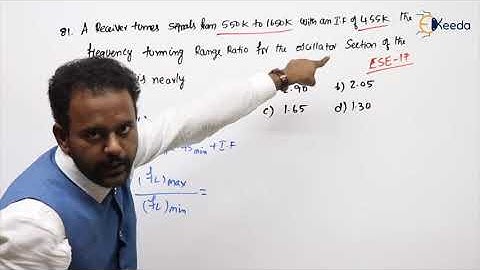 81. A Receiver tunes signals from 550K to 1650K with an I.F of 455K the
frequency tunning Range Ratio for the oscillator Section of the
is nearly
ESE-17
2.90 b) 2.05
c) 1.65 d) 1.30
min + I.F
(fL)max
(fL)min =
Ekeeda